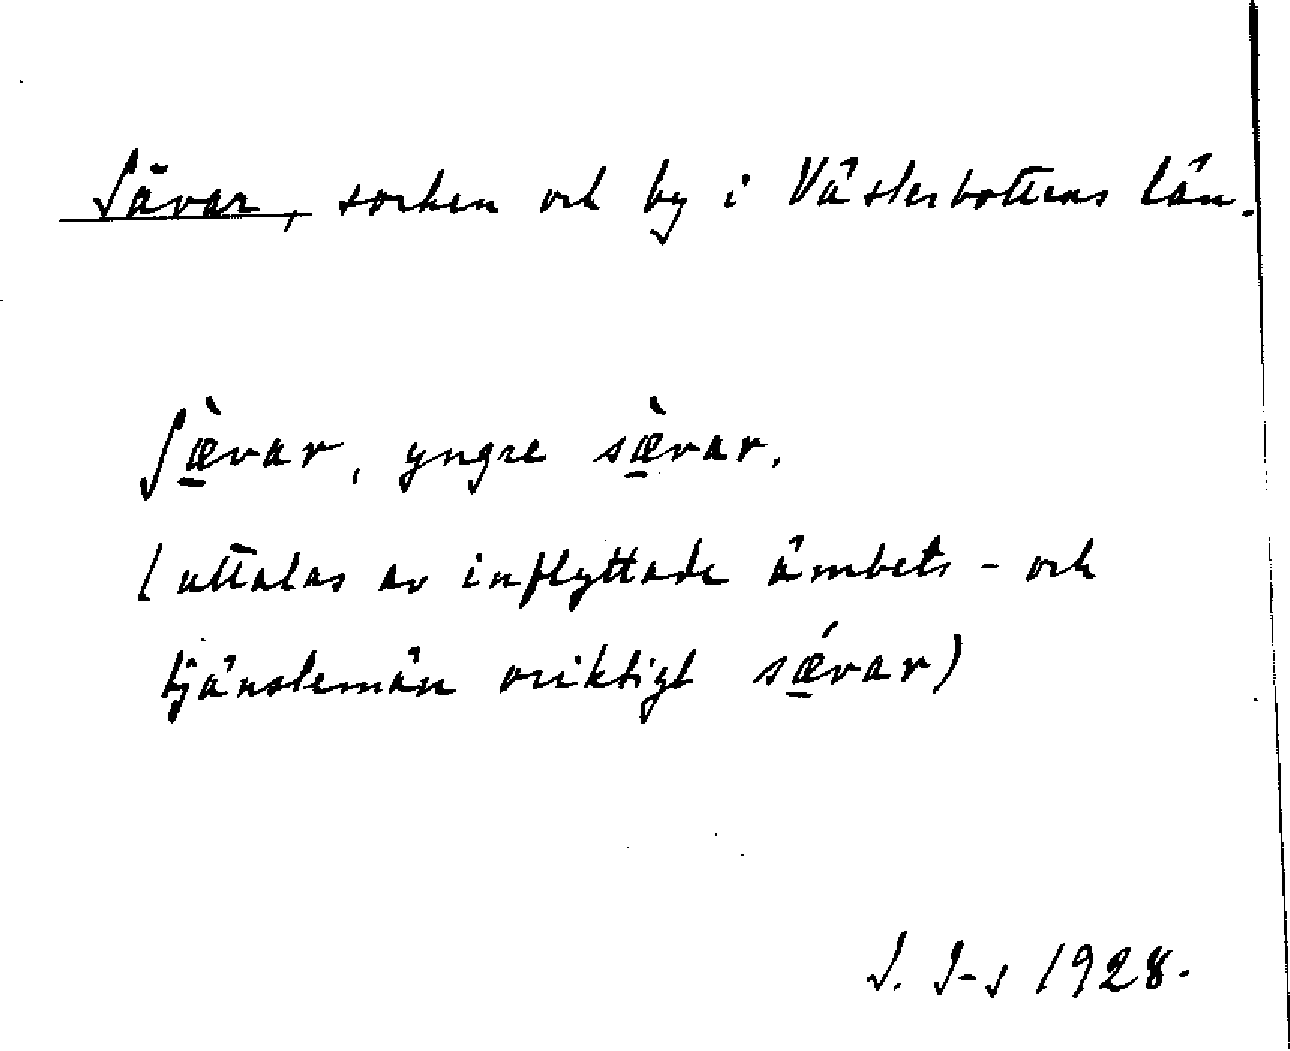 Sävar, socken och by i Västerbottens län.
ʃæ̱̀var, yngre sæ̱̀var.
(uttalas av inflyttade ämbets- och
tjänstemän oriktigt sǽ̱var)
J. J-s 1928.